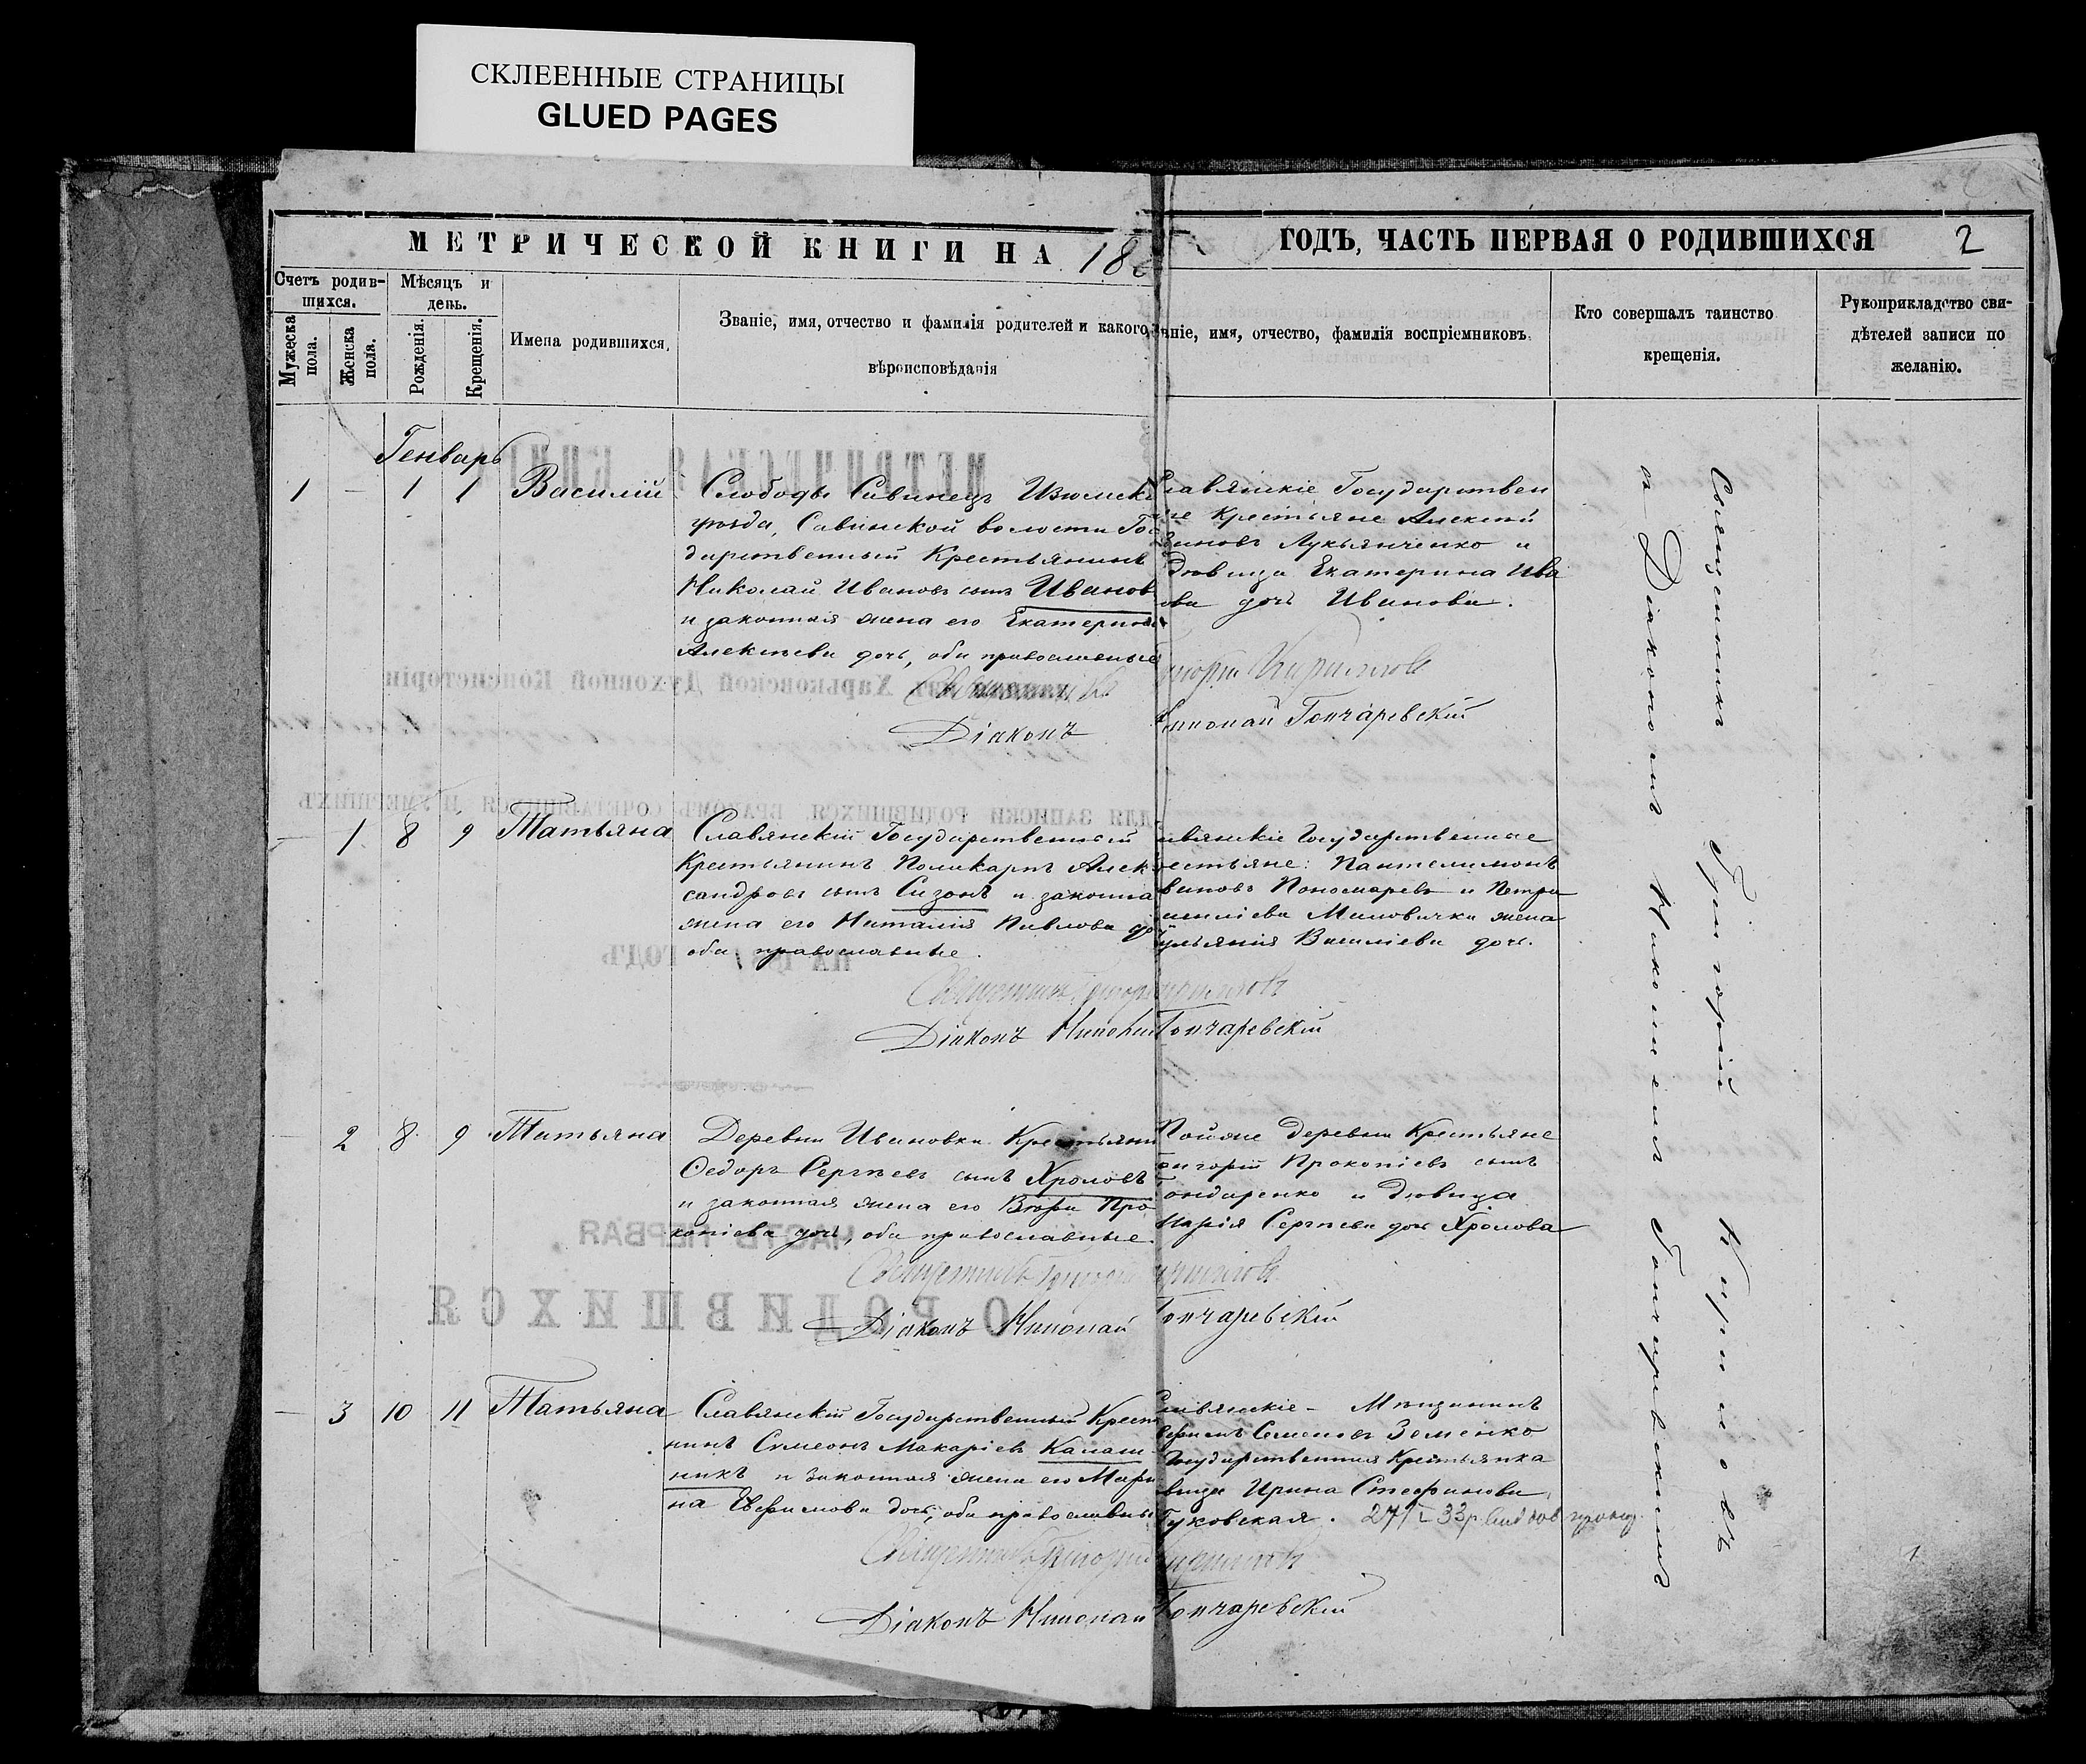 СКЛЕЕННЫЕ СТРАНИЦЫ
GLUED PAGES
МЕТРИЧЕСКОЙ КНИГИ НА 18
ГОДЪ, ЧАСТЬ ПЕРВАЯ О РОДИВШИХСЯ 2
Счетъ родив-
шихся.
Мужеска
пола.
Женска
пола.
Мѣсяцъ и
день.
Рожденія.
Крещенія.
Имена родившихся.
Званіе, имя, отчество и фамилія родителей и какого
вѣроисповѣданія
аніе, имя, отчество, фамилія воспріемниковъ.
Кто совершалъ таинство
крещенія.
Рукоприкладство сви-
дѣтелей записи по
желанію.
Генварь
1 – 1 1 Василій
Слободы Савинецъ Изюмск
уѣзда, Савинской волости Го
дарственный Крестьянинъ
Николай Ивановъ сынъ Иванов
и законная жена его Екатерина
Алексѣева дочь, оба православные
Славянскіе Государствен
ые Крестьяне Алексѣй
Лукьянченко и
дѣвица Екатерина Ива
ова дочь Иванова.
Кириллов
Діаконъ Николай Гончаревскій
– 1 8 9 Татьяна
Славянскій Государственный
Крестьянинъ Поликарпъ Алек
сандровъ сынъ Сизонъ и законна
жена его Наталія Павлова до
оба православные.
авянскіе Государственные
естьяне: Пантелимонъ
вановъ Пономаревъ и Петра
жена
ульянія Василіева дочь.
Священникъ Григор ирилловъ
Діаконъ Николай Гончаревскій
– 2 8 9 Татьяна
Деревни Ивановки Крестьяни
Ѳедоръ Сергѣевъ сынъ Хроловъ
и законная жена его Вѣра Про
копіева дочь, оба православные.
Тойже деревни Крестьяне
ригорій Прокопіевъ сынъ
ондаренко и дѣвица
Марія Сергѣева дочь Хролова
Священникъ Григорій ирилловъ
Діаконъ Николай Гончаревскій
– 3 10 11 Татьяна
Славянскій Государственный Крест
нинъ Симеонъ Макаріевъ Калаш-
никъ и законная жена его Мари
на Ефимова дочь, оба православны
авянскіе – Мѣщанинъ
Семеновъ Зеленко
Государственная Крестьянка
вица Ирина Стефанова
Гуковская. 27/I 33р.
Священникъ Григорій Кирилловъ
Діаконъ Николай Гончаревскій
Священникъ Григорій Кирилловъ
съ Діакономъ Николаемъ Гончаревскимъ